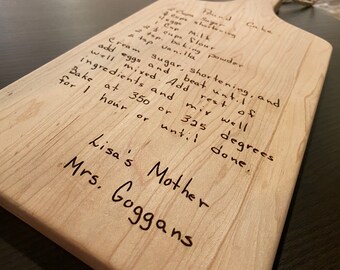 Pound Cake
cup sugar
cup shortening
1 cup milk
cups flour
tsp. baking powder
tsp. vanilla
Cream sugar, shortening, and
add eggs and beat until
well mixed. Add rest of
ingredients and mix well
Bake at 350 or 325 degrees
for 1 hour or until done.
Lisa's Mother
Mrs. Goggans